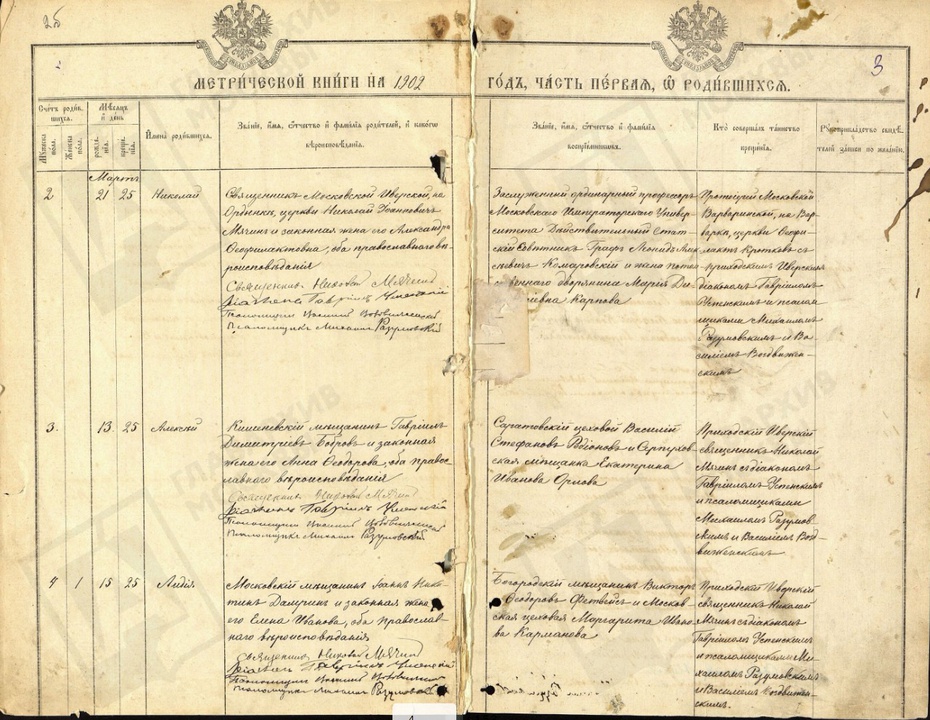 2б
3
МЕТРИЧЕСКОЙ КНИГИ НА 1902
ГОДЪ, ЧАСТЬ ПЕРВАЯ, Ѡ РОДИВШИХСЯ.
Счетъ родив-
шихся.
Мужеска пола.
Женска пола.
Мѣсяцъ и день
рожденія.
крещенія.
Имена родившихся.
Званіе, имя, отчество и фамилія родителей, и какого
вѣроисповѣданія.
Званіе, имя, отчество и фамилія
воспріемниковъ.
Кто совершалъ таинство
крещенія.
Рукоприкладство свидѣ-
телей записи по желанію.
Мартъ
2 21 25 Николай
Священникъ Московской Иверской, на
Ордынкѣ, церкви Николай Іоанновичъ
Мячинъ и законная жена его Александра
Ѳеофилактовна, оба православнаго вѣ-
роисповѣданія
Священникъ Николай Мячинъ
Діаконъ Гавріилъ Успенскій
Псаломщикъ Василій Воздвиженскій
Псаломщикъ Михаилъ Разумовскій
Заслуженный ординарный профессоръ
Московскаго Императорскаго Универ-
ситета Дѣйствительный Стат-
скій Совѣтникъ Графъ Леонидъ Алек
сѣевичъ Комаровскій и жена потом
ственнаго дворянина Марія
Карпова
Протоіерей Московской
Варваринской, на Вар-
варкѣ, церкви Ѳеофи-
лактъ Кротковъ съ
приходскимъ Иверскимъ
діакономъ Гавріиломъ
Успенскимъ и псалом-
щиками Михаиломъ
Разумовскимъ и Ва-
силіемъ Воздвижен-
скимъ
3. 13 25 Алексій
мѣщанинъ Гавріилъ
Димитріевъ Бобровъ и законная
жена его Анна Ѳеодорова, оба право-
славнаго вѣроисповѣданія
Священникъ Николай Мячинъ
Діаконъ Гавріилъ Успенскій
Псаломщикъ Василій Воздвиженскій
Псаломщикъ Михаилъ Разумовскій
Саратовскій цеховой Василій
Стефановъ Родіоновъ и Серпухов
ская мѣщанка Екатерина
Иванова Орлова
Приходскій Иверскій
священникъ Николай
Мячинъ съ діакономъ
Гавріиломъ Успенскимъ
и псаломщиками
Михаиломъ Разумов-
скимъ и Василіемъ Возд-
виженскимъ
4 1 15 25 Лидія
Московскій мѣщанинъ Іоаннъ Ники-
тинъ и законная жена
его Елена Иванова, оба православ
наго вѣроисповѣданія
Священникъ Николай Мячинъ
Діаконъ Гавріилъ Успенскій
Псаломщикъ Василій Воздвиженскій
Псаломщикъ Михаилъ Разумовскій
Богородскій мѣщанинъ Викторъ
Ѳеодоровъ и Москов-
ская цеховая Маргарита Ивано
ва Карманова
Приходскій Иверскій
священникъ Николай
Мячинъ съ діакономъ
Гавріиломъ Успенскимъ
и псаломщиками Ми-
хаиломъ Разумовскимъ
и Василіемъ Воздвижен-
скимъ.